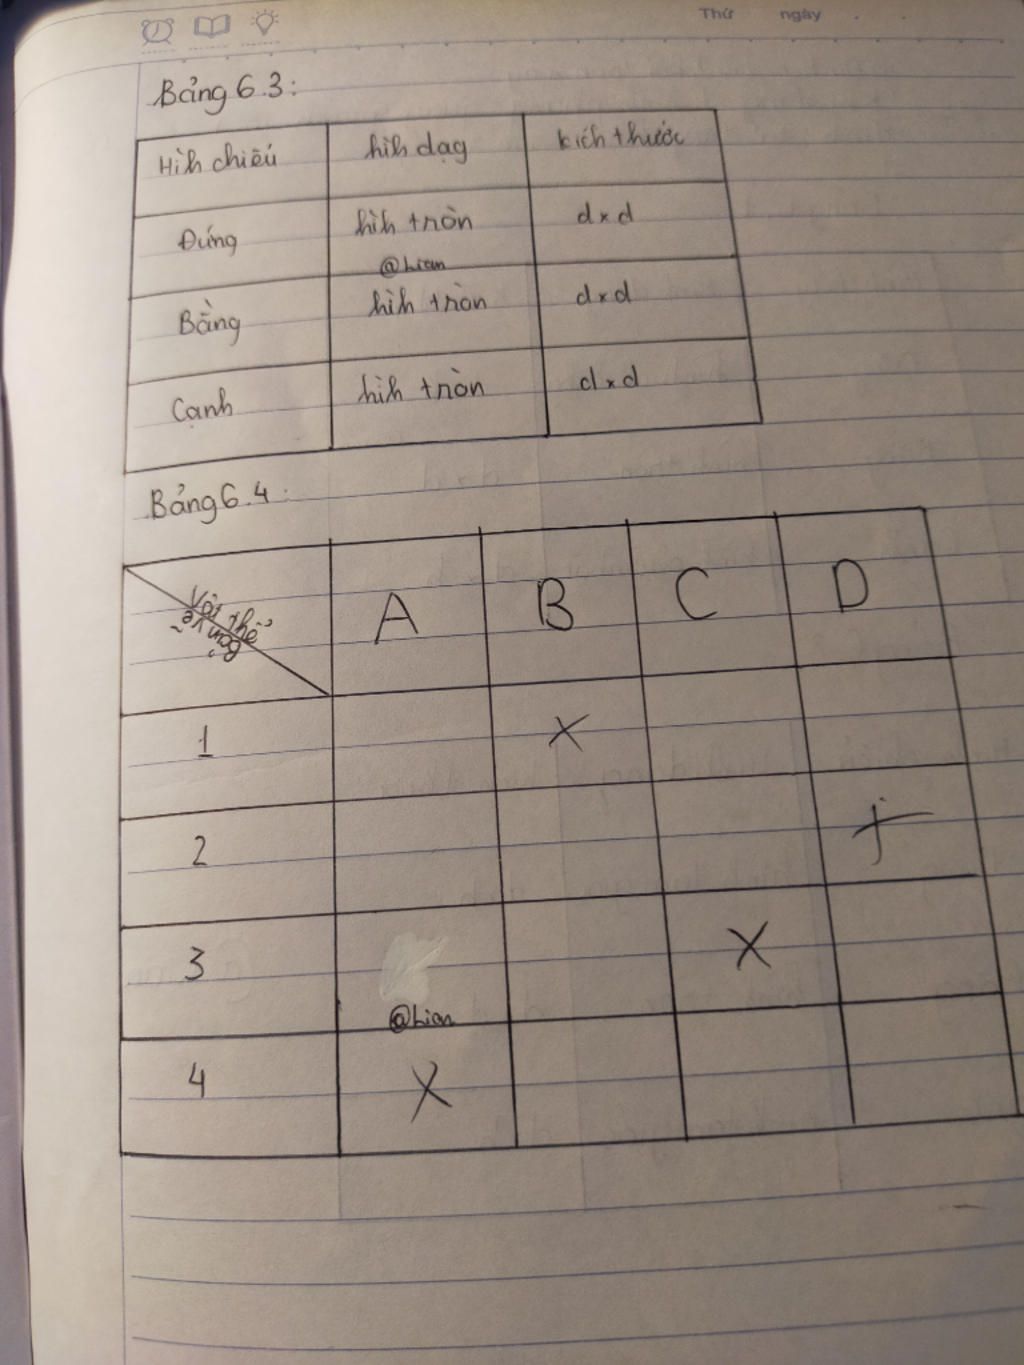 Thứ ngày
Bảng 6.3:
Hìh chiếu hìh dạg kích thước
Đứng hìh tròn d x d
@Lien
Bằng hìh tròn d x d
Cạnh hìh tròn d x d
Bảng 6.4:
Vật thể
Bản vẽ
A B C D
1 X
2 +
3 X
@Lien
4 X